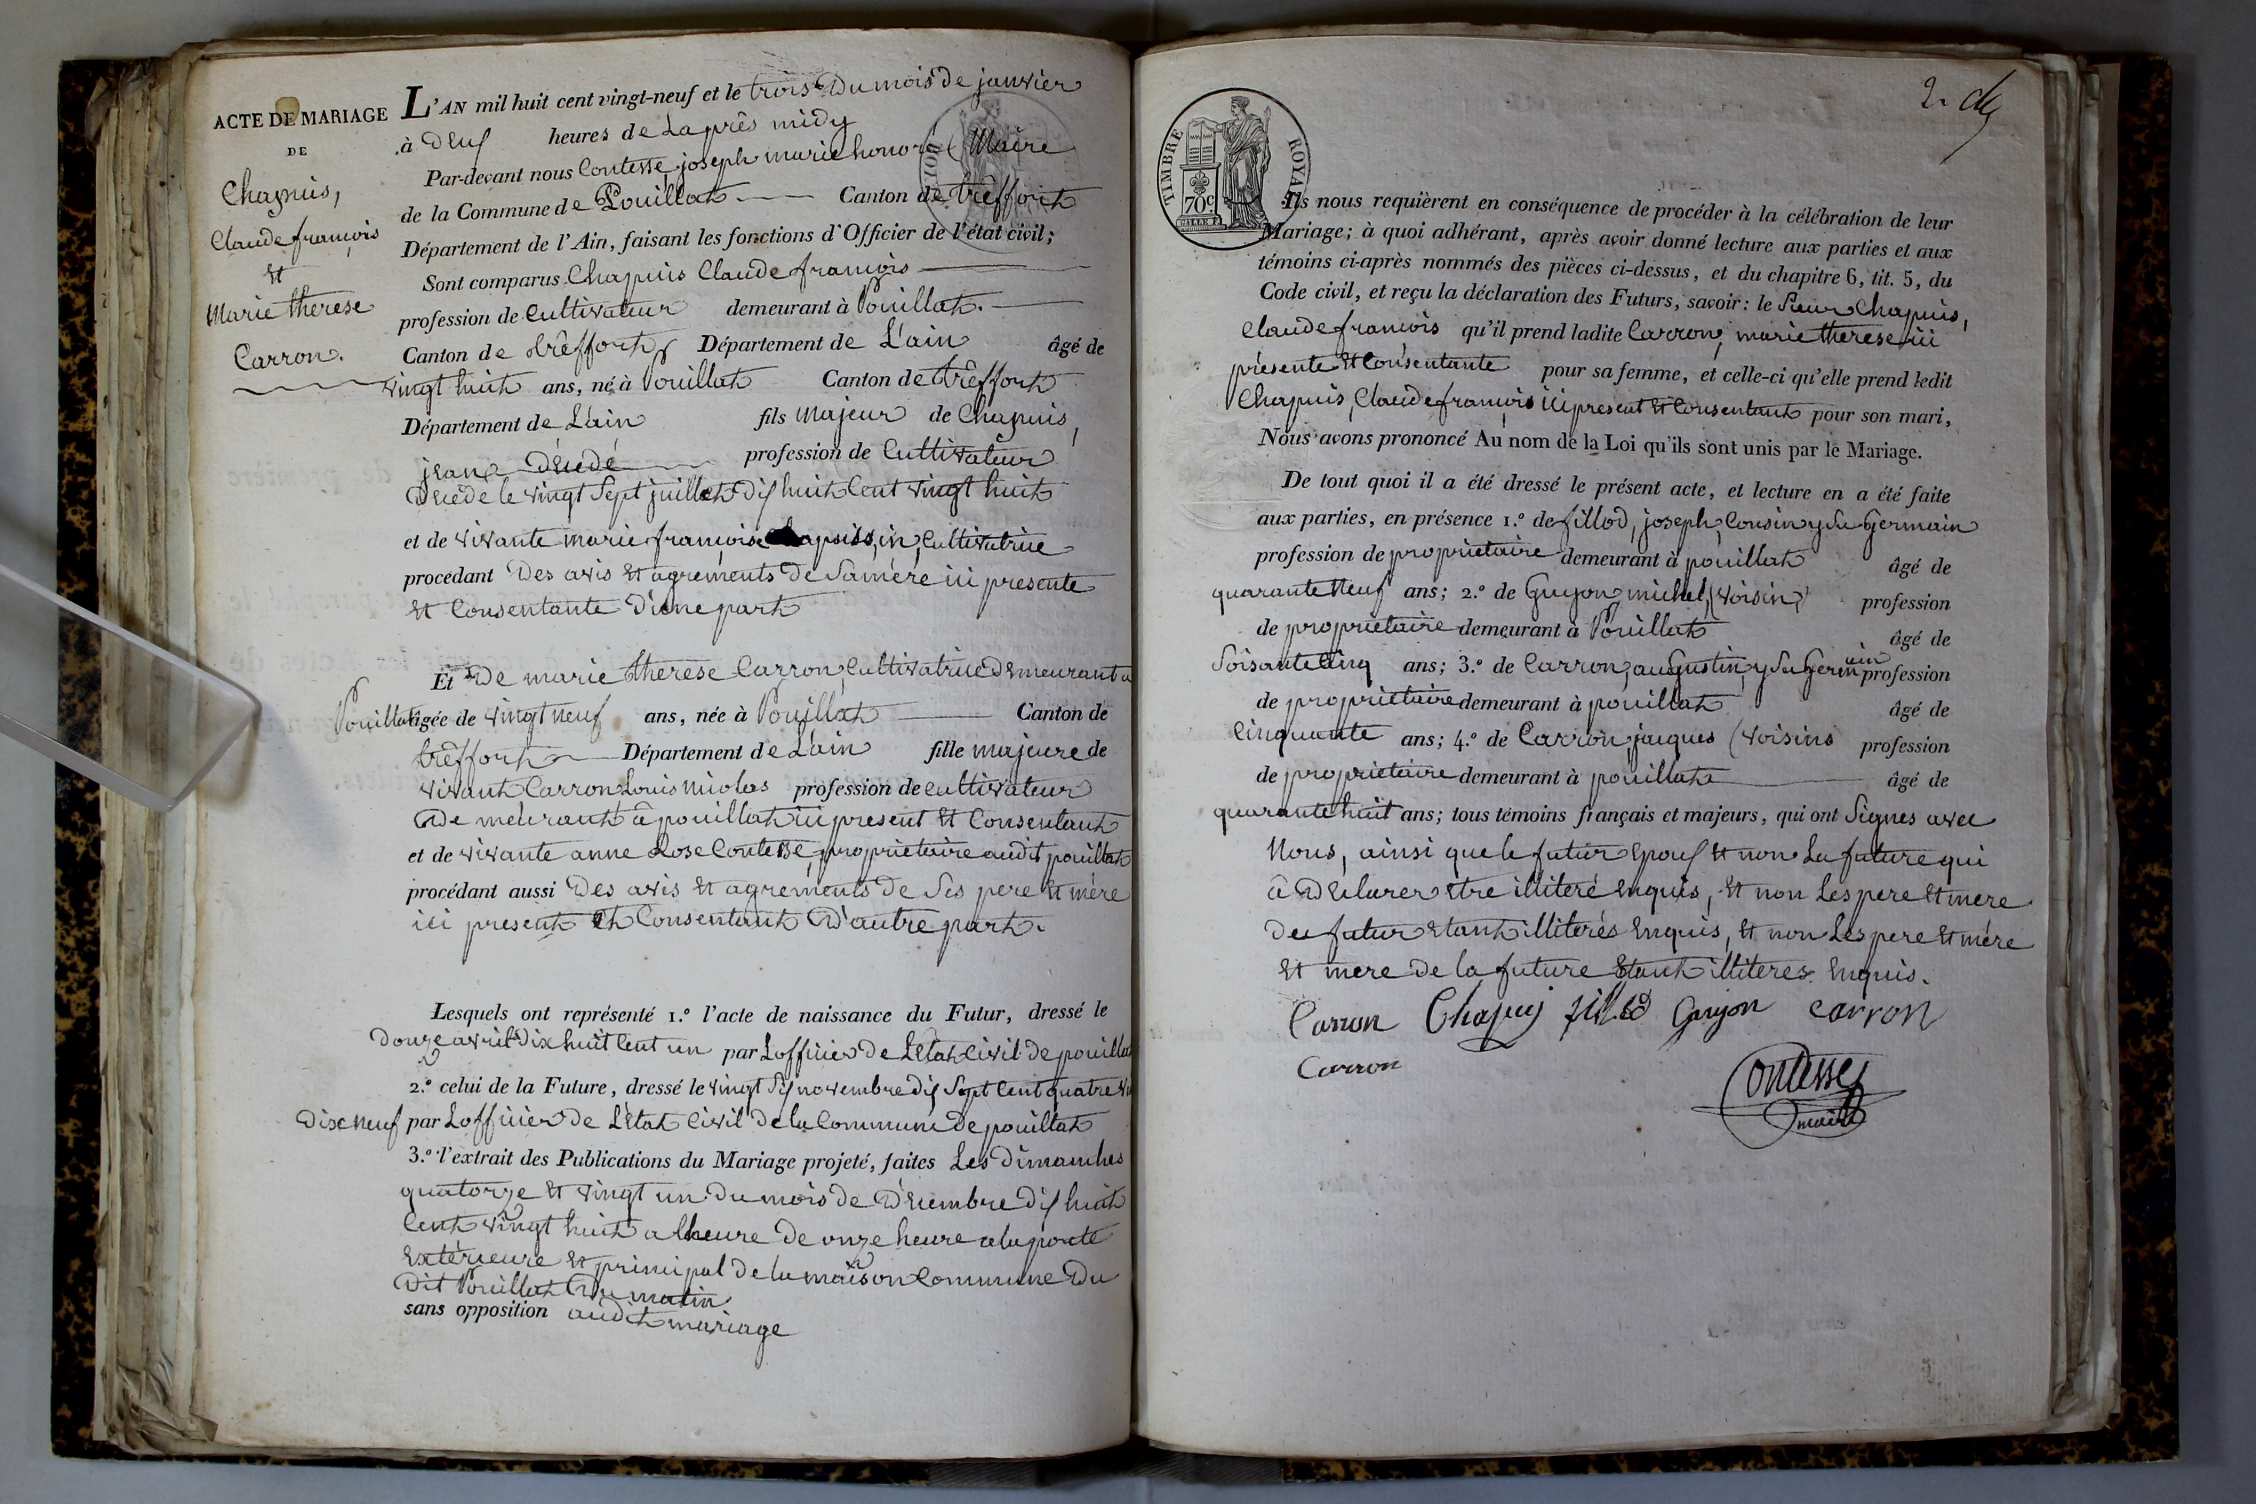 ACTE DE MARIAGE
DE
Chapuis,
Claude françois
et
Marie therese
Carron.
L'AN mil huit cent vingt-neuf et le trois du mois de janvier
à deux heures de Laprès midy
Par-devant nous Contesse joseph marie honoré Maire
de la Commune de Pouillat Canton de trêffort
Département de l'Ain, faisant les fonctions d'Officier de l'état civil;
Sont comparus Chapuis Claude françois
profession de Cultivateur demeurant à Pouillat.
Canton de trêffort Département de L'ain âgé de
vingt huit ans, né à Pouillat Canton de trêffort
Département de L'ain fils Majeur de Chapuis,
jean décédé profession de Cultivateur
décédé le vingt Sept juillet dix huit Cent vingt huit
et de vivante marie françoise Cultivatrice
procédant des avis et agréments de Sa mère ici presente
et Consentante d'une part
Et de marie therese Carron, Cultivatrice demeurant a
Pouillat âgée de vingt neuf ans, née à Pouillat Canton de
trêffort Département de L'ain fille majeure de
vivant Carron Louis nicolas profession de cultivateur
demeurant à pouillat ici present et Consentant
et de vivante anne Rose Contesse, proprietaire audit pouillat
procédant aussi des avis et agréments de Ses pere et mère
ici present et Consentant d'autre part.
Lesquels ont représenté 1.º l'acte de naissance du Futur, dressé le
douze avril dix huit Cent un par Lofficier de L'état Civil de pouillat
2.º celui de la Future, dressé le vingt Six novembre dix Sept Cent quatre
dix neuf par Lofficier de L'état Civil de la Commune de pouillat
3.º l'extrait des Publications du Mariage projeté, faites Les dimanches
quatorze et vingt un du mois de décembre dix huit
Cent vingt huit a lheure de onze heure a la porte
extérieure et principal de la maison Commune du
dit Pouillat du matin
sans opposition audit mariage
2. 
TIMBRE ROYAL
70c
Ils nous requièrent en conséquence de procéder à la célébration de leur
Mariage; à quoi adhérant, après avoir donné lecture aux parties et aux
témoins ci-après nommés des pièces ci-dessus, et du chapitre 6, tit. 5, du
Code civil, et reçu la déclaration des Futurs, savoir: le Sieur Chapuis,
Claude françois qu'il prend ladite Carron, marie therese ici
présente et Consentante pour sa femme, et celle-ci qu'elle prend ledit
Chapuis, Claude françois ici present et Consentant pour son mari,
Nous avons prononcé Au nom de la Loi qu'ils sont unis par le Mariage.
De tout quoi il a été dressé le présent acte, et lecture en a été faite
aux parties, en présence 1.º de fillod, joseph, Cousin Germain
profession de proprietaire demeurant à pouillat âgé de
quarante Neuf ans; 2.º de Guyon michel, (voisin) profession
de proprietaire demeurant à Pouillat âgé de
Soisante Cinq ans; 3.º de Carron, augustin, Germain profession
de proprietaire demeurant à pouillat âgé de
Cinquante ans; 4.º de Carron, jacques (voisins profession
de proprietaire demeurant à pouillat âgé de
quarante huit ans; tous témoins français et majeurs, qui ont Signes avec
Nous, ainsi que le futur epoux et non La future qui
à déclarer être illiteré enquis, et non Les pere et mere
du futur etant illiterés enquis, et non Les pere et mère
et mere de la future etant illiteres enquis.
Carron Chapuis fillod Guyon Carron
Carron
Contesse
maire